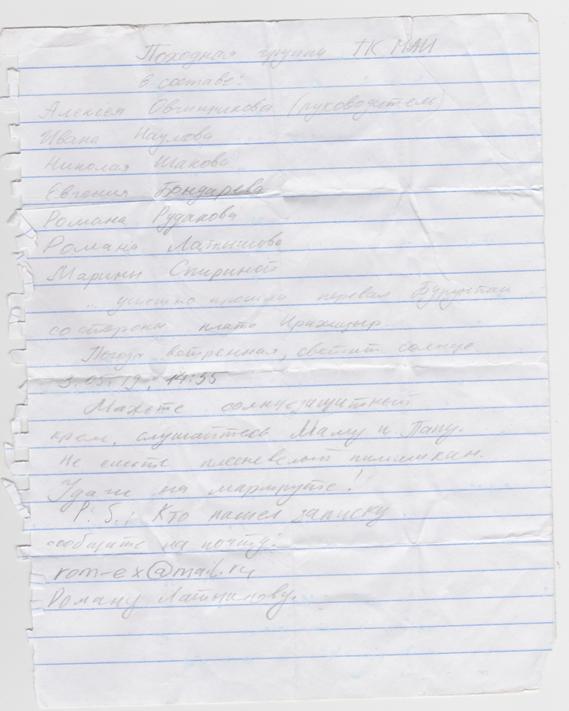 Походная группа ТК МАИ
в составе:
Алексея Овчинникова (руководитель)
Ивана Наумова
Николая Шакова
Евгения Бондарева
Романа Рудакова
Романа Латыпова
Марины Спириной
... успешно прошла перевал Бурунташ
со стороны плато Ирахицыр
Погода ветренная, светит солнце
3.05.19 14:55
Мажьте солнцезащитный
крем, слушайтесь Маму и Папу.
Не ешьте плесневелый
Удачи на маршруте!
P.S.: Кто нашел записку
сообщите на почту:
rom-ex@mail.ru
Роману Латыпову.